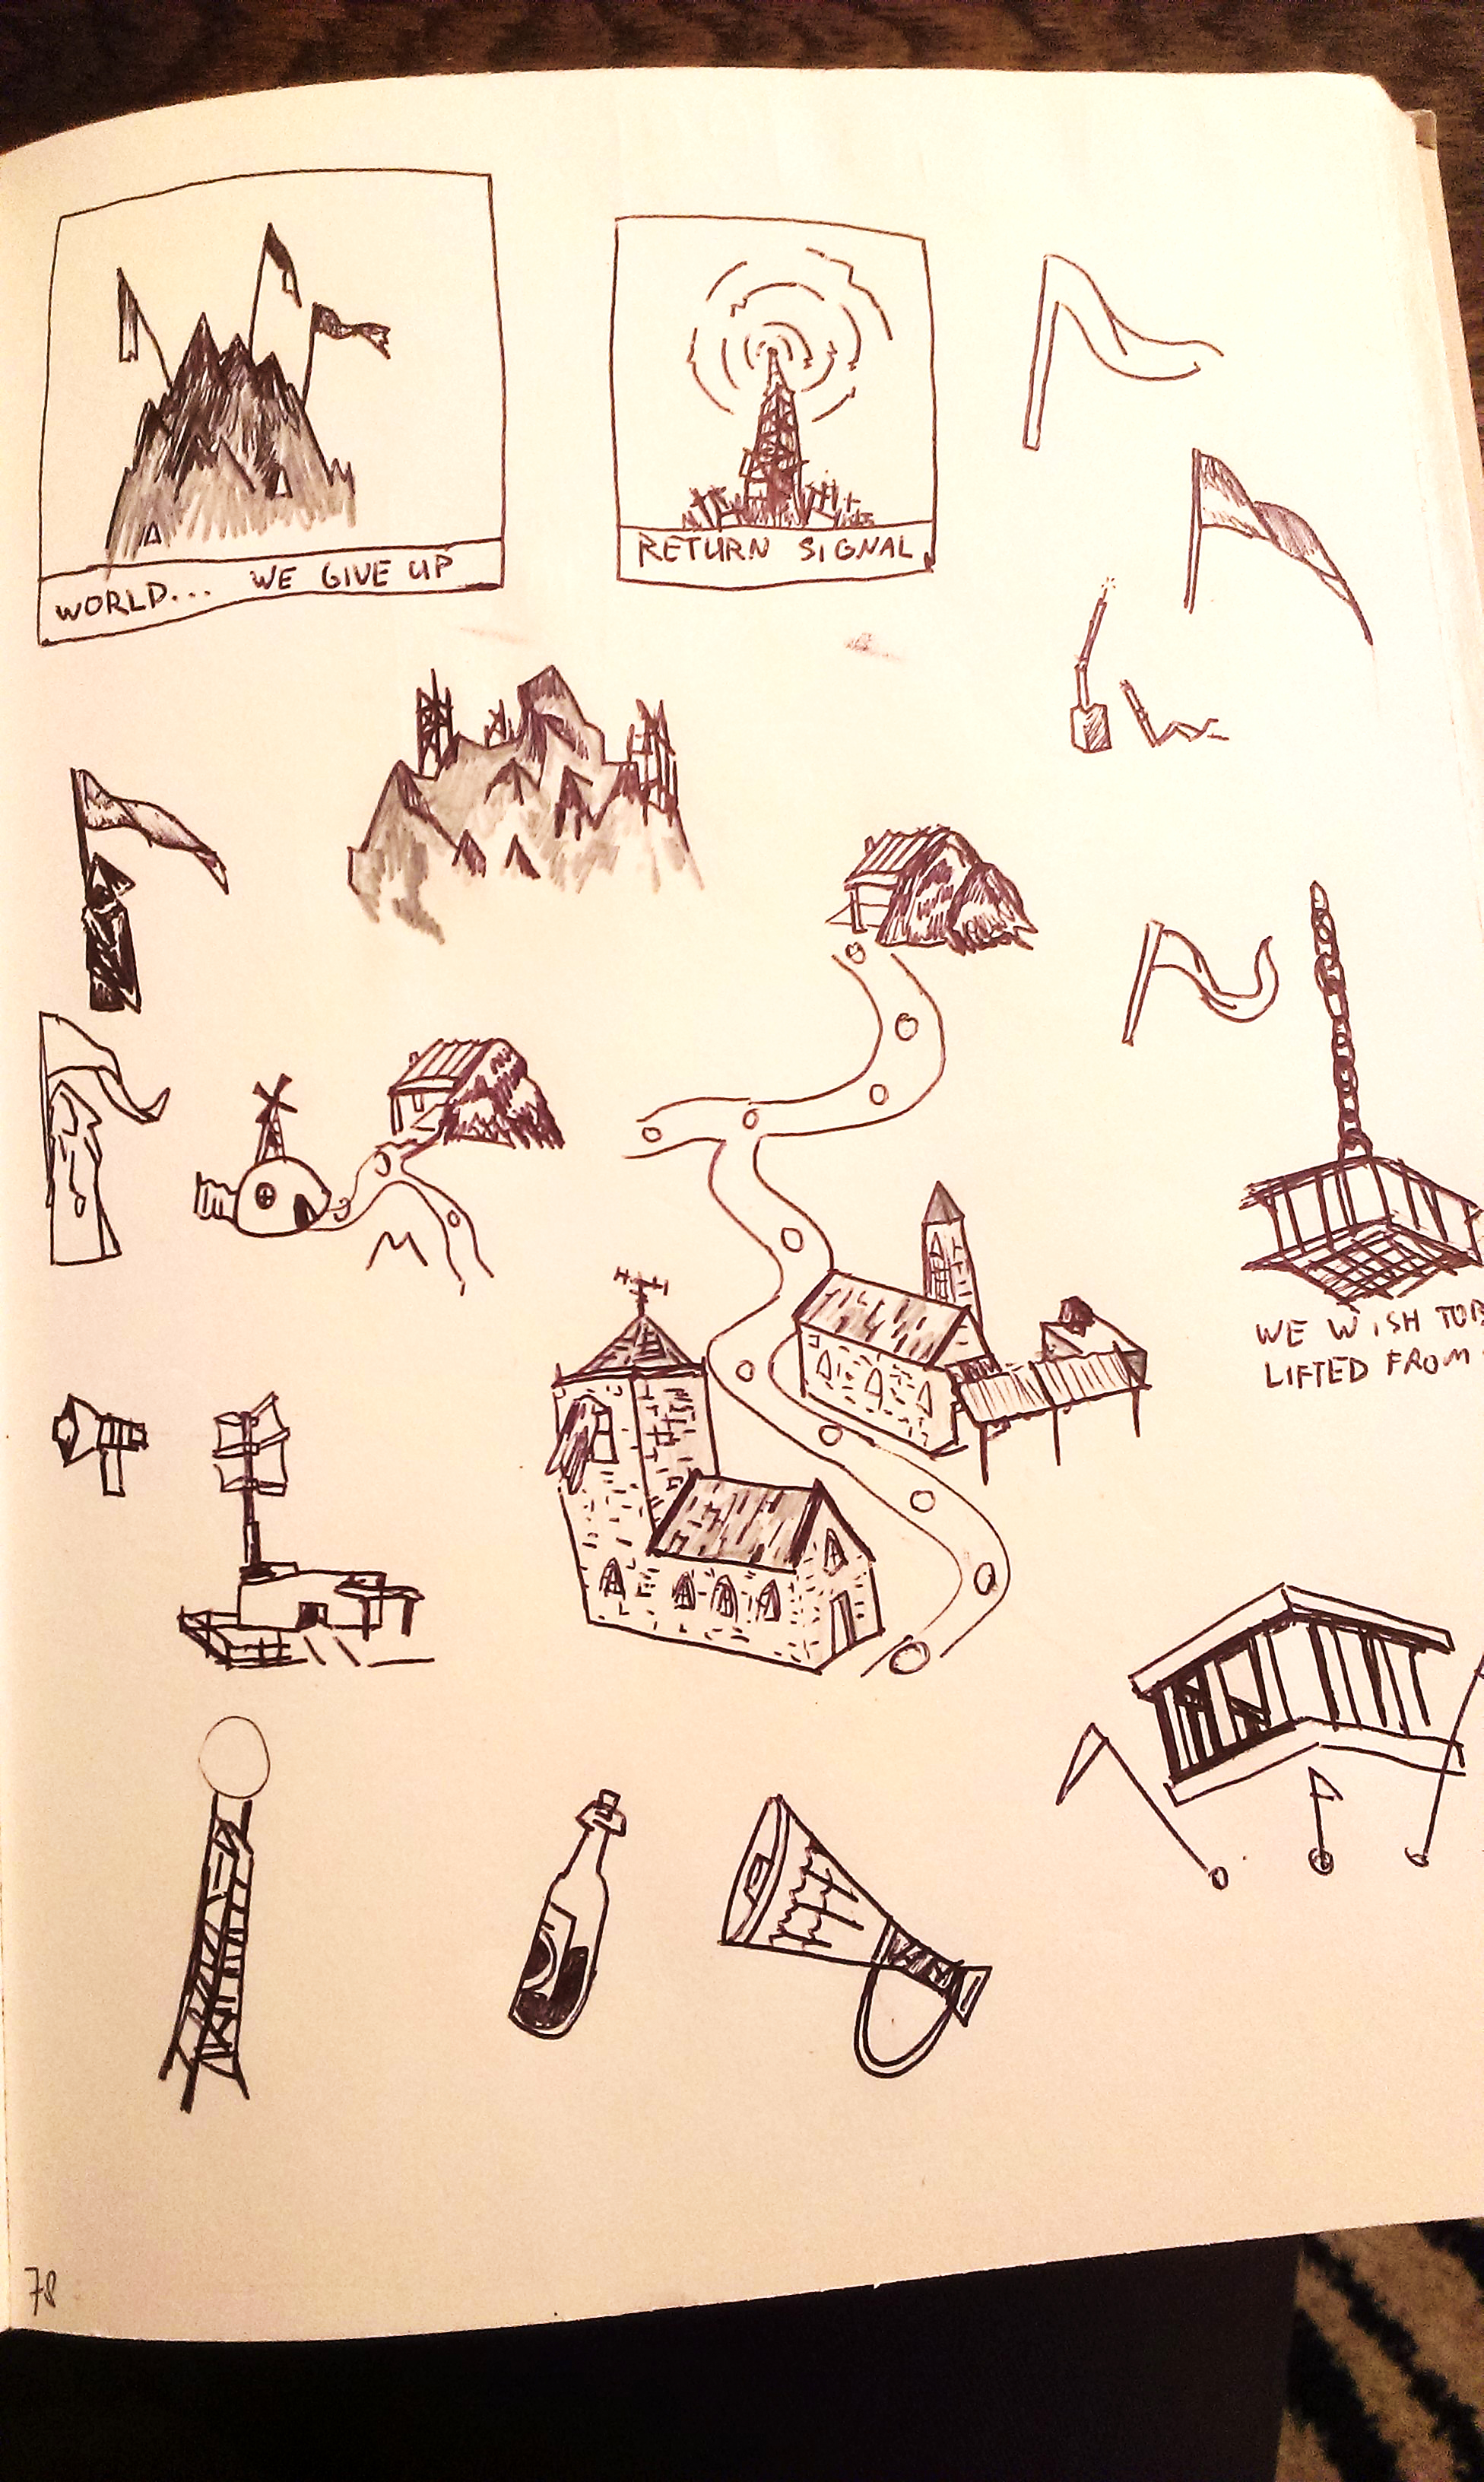 WORLD... WE GIVE UP
RETURN SIGNAL
WE WISH TO
LIFTED FROM
78